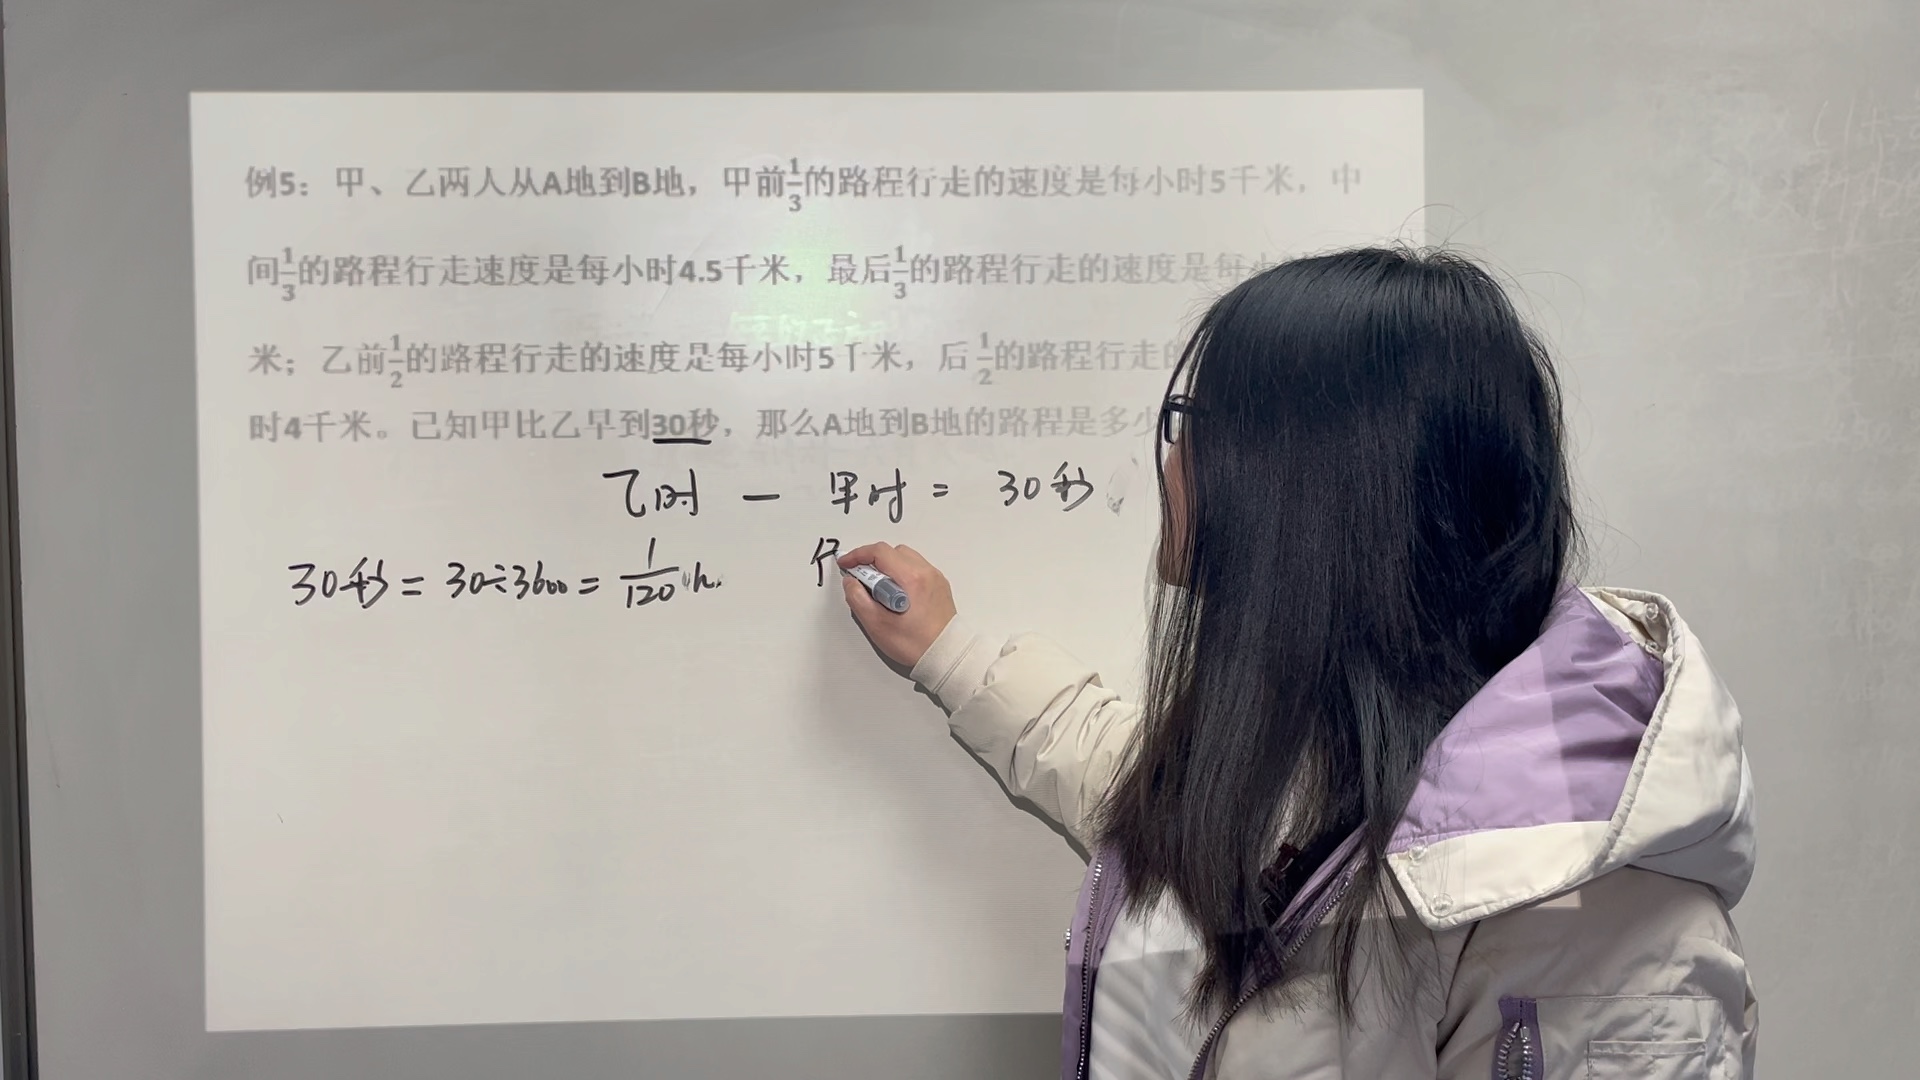 例5：甲、乙两人从A地到B地，甲前1/3的路程行走的速度是每小时5千米，中
间1/3的路程行走速度是每小时4.5千米，最后1/3的路程行走的速度是每
米；乙前1/2的路程行走的速度是每小时5千米，后1/2的路程行走的
时4千米。已知甲比乙早到30秒，那么A地到B地的路程是多少
乙时 — 甲时 = 30秒
30秒 = 30÷3600 = 1/120 h.